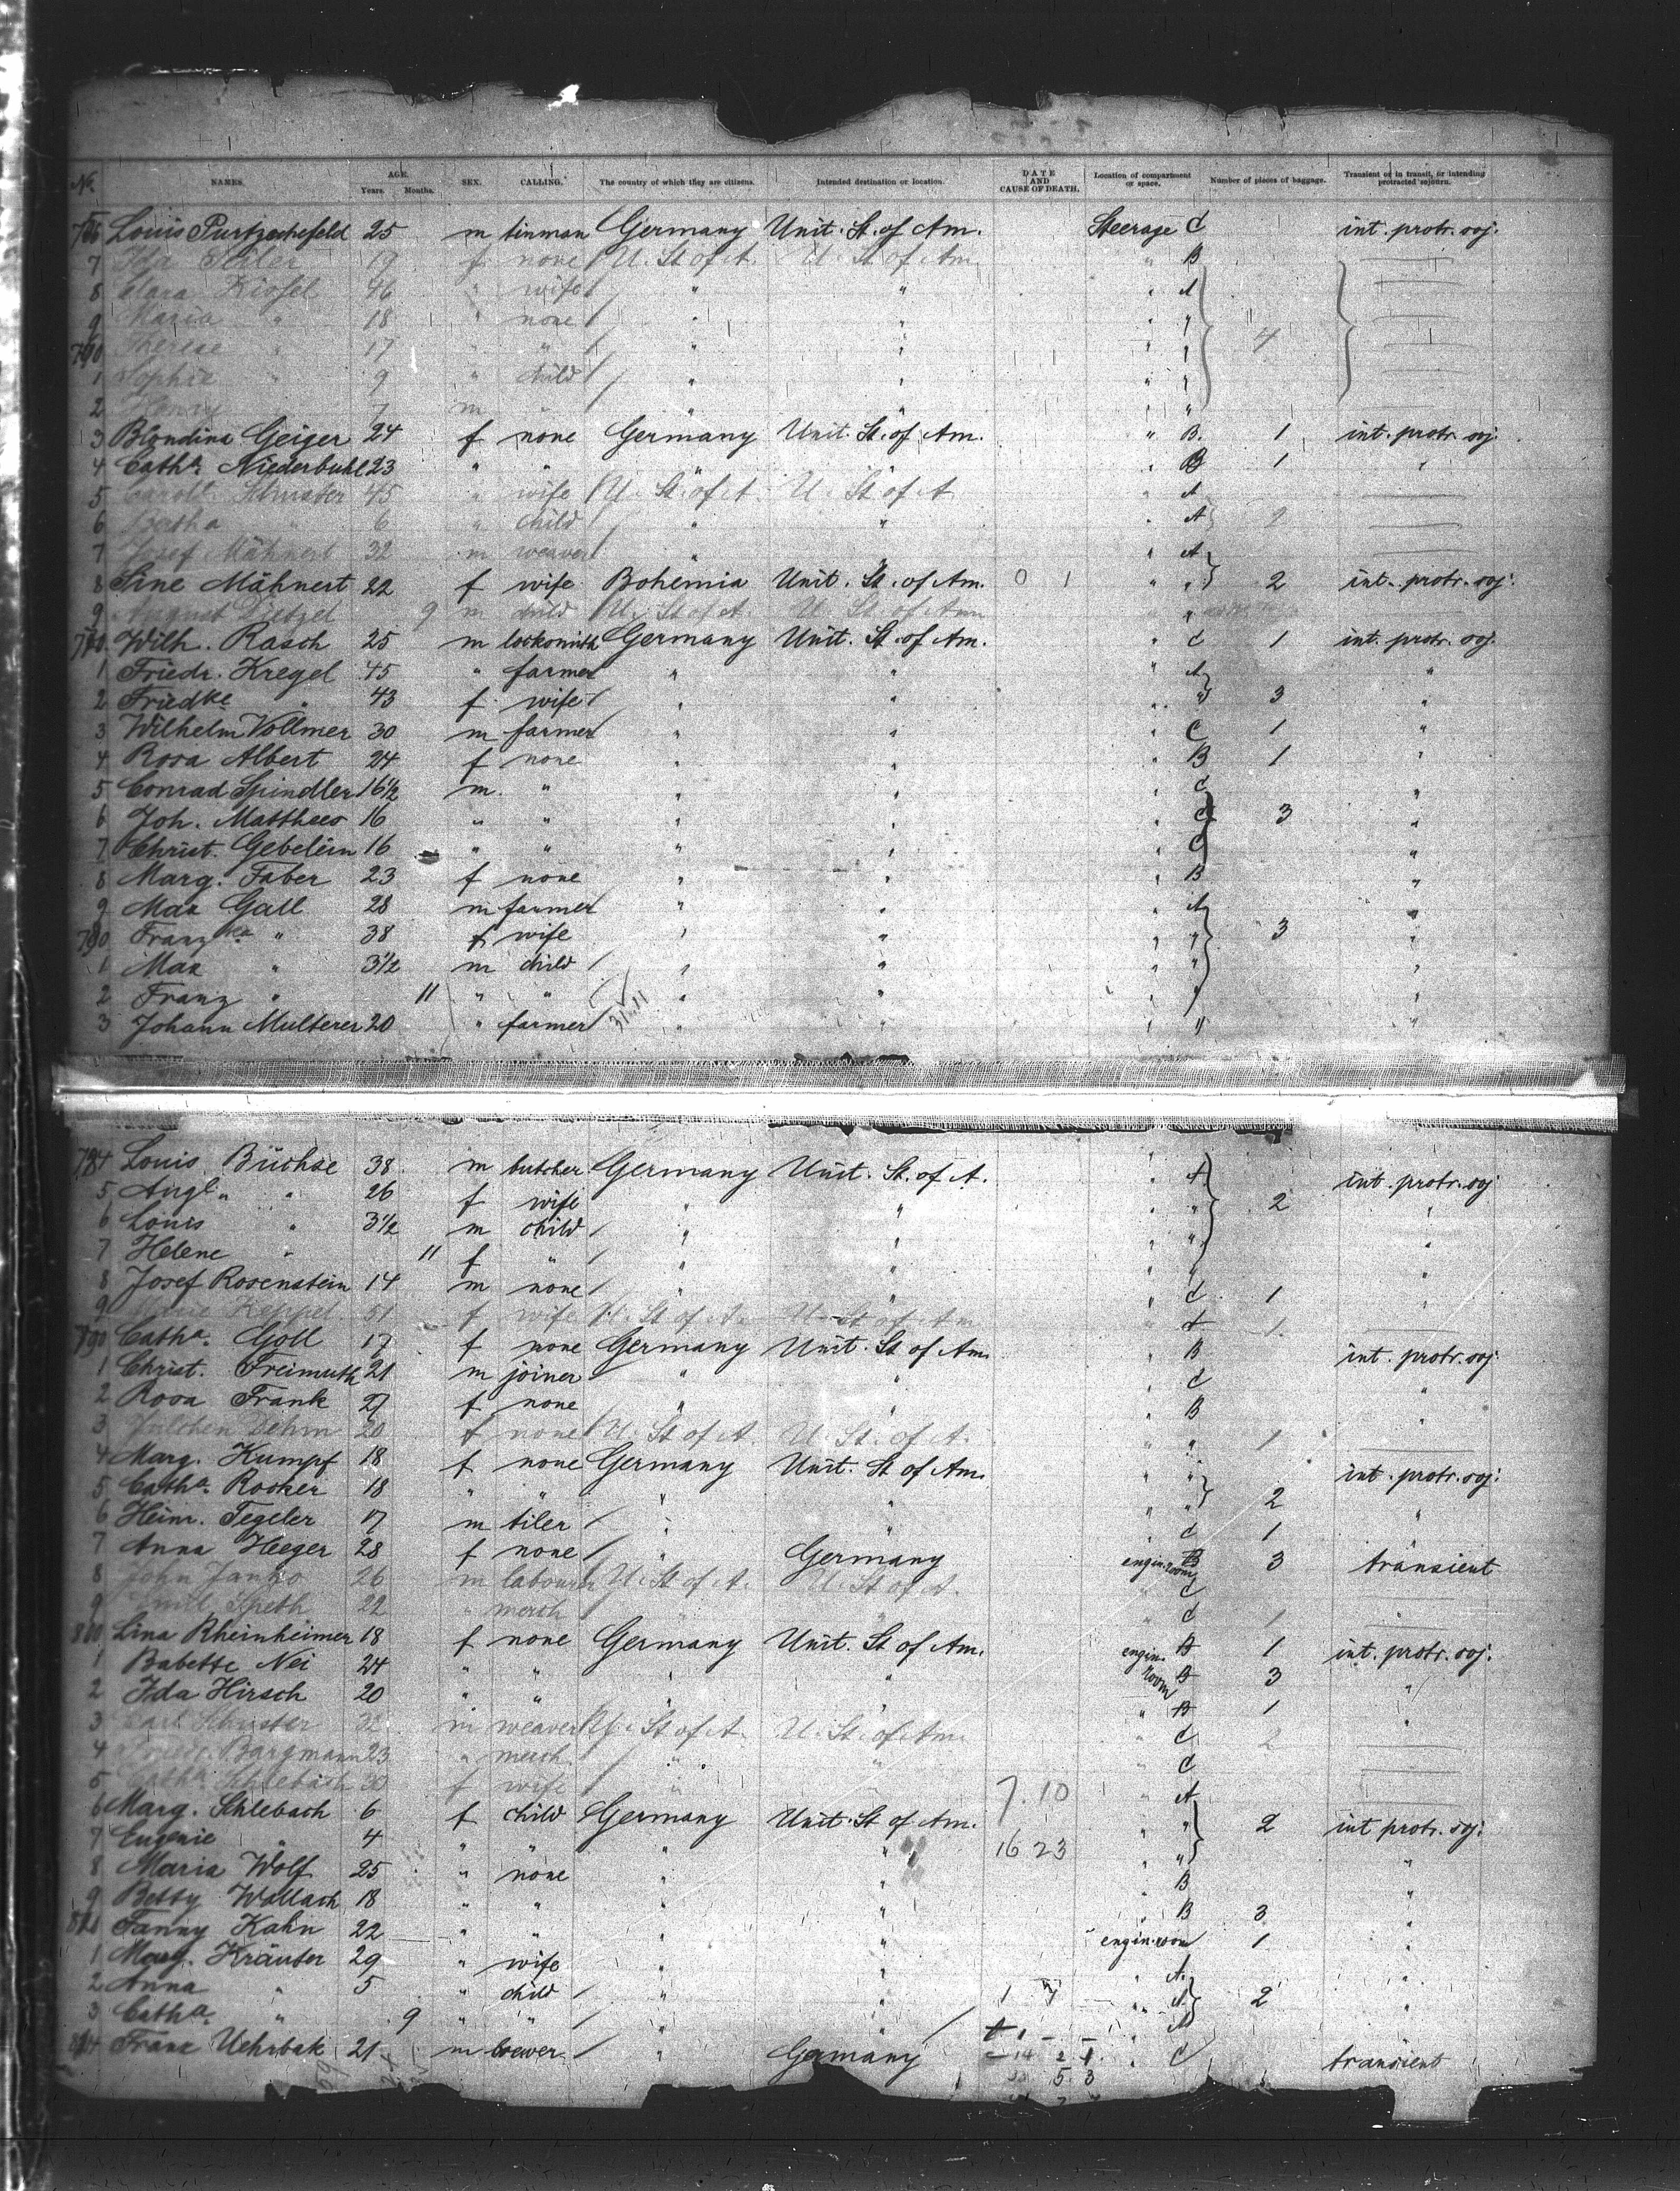 No. NAMES. AGE. Years. Months. SEX. CALLING. The country of which they are citizens. Intended destination or location. DATE AND CAUSE OF DEATH. Location of compartment or space. Number of pieces of baggage. Transient or in transit, or intending protracted sojourn.
Louis Purtzschefeld 25 m tinman Germany Unit. St. of Am. Steerage C int. protr. soj.
7 Ida 19 f none U. St of A. U. St of Am. " B
8 Clara Kiosel 46 " wife " " " A
9 Maria " 18 " none " " " "
790 Therese " 17 " " " " " " 4
1 Sophie " 9 " child " " " "
2 7 m " " " " "
3 Blondina Geiger 24 f none Germany Unit. St. of Am. " B. 1 int. protr. soj.
4 Catha. Niederbuhl 23 " " " " " B 1 "
5 Carol. Schuster 45 " wife U. St. of A. U. St of A " A
6 Bertha " 6 " child " " " A 2
7 Josef Mähnert 32 m weaver " " " A
8 Sine Mähnert 22 f wife Bohemia Unit. St. of Am. 0 1 " " 2 int. protr. soj.
9 August Dietzel 9 m child U. St of A. U. St of Am " "
Wilh. Rasch 25 m locksmith Germany Unit. St. of Am. " C 1 int. protr. soj.
1 Friedr. Kregel 45 " farmer " " " A "
2 Friedke " 43 f. wife " " " " 3 "
3 Wilhelm Vollmer 30 m farmer " " " C 1 "
4 Rosa Albert 24 f none " " " B 1 "
5 Conrad Spindler 16½ m. " " " " C "
6 Joh. Matthaes 16 " " " " " C 3 "
7 Christ. Gebelein 16 " " " " " C "
8 Marg. Faber 23 f none " " " B "
9 Max Gall 28 m farmer " " " A "
Franzka " 38 f wife " " " " 3 "
1 Max " 3½ m child " " " " "
2 Franz " 11 " " " " " " "
3 Johann Multerer 20 " farmer 31.11 " " " " "
Louis Büchse 38 m butcher Germany Unit. St. of A. " A int. protr. soj
5 Angl. " 26 f wife " " " " 2 "
6 Louis " 3½ m child " " " " "
7 Helene " 11 f " " " " " "
8 Josef Rosenstein 14 m none " " " C 1 "
9 Keppel 51 f wife U. St of A. U. St of Am " A 1.
Catha. Goll 17 f none Germany Unit. St of Am. " B int. protr. soj.
1 Christ. Freimuth 21 m joiner " " " C "
2 Rosa Frank 27 f none " " " B "
3 Julchen Dehm 20 f none U. St of A. U. St. of A. " " 1
4 Marg. Kumpf 18 f none Germany Unit. St of Am. " " int. protr. soj.
5 Catha. Rooker 18 " " " " " " 2
6 Heinr. Tegeler 17 m tiler " " " C 1 "
7 Anna Heeger 28 f none " Germany engin. room B 3 transient
8 John Janko 26 m labourer U. St of A. U. St of A. C
9 Emil Speth 22 " merch " " " C 1
Lina Rheinheimer 18 f none Germany Unit. St of Am. engin. B 1 int. protr. soj.
1 Babette Nei 24 " " " " room B 3 "
2 Ida Hirsch 20 " " " " " B 1 "
3 Carl Schuster 32 m weaver U. St of A U. St. of Am. " C 2
4 Bargmann 23 " merch. " " " C
5 Catha. Schlebach 30 f wife " 7. 10 " A
6 Marg. Schlebach 6 f child Germany Unit. St of Am. " " 2 int protr. soj.
7 Eugenie " 4 " " " " 16 23 " " "
8 Maria Wolf 25 " none " " " B
9 Betty Wallach 18 " " " " " B 3 "
Fanny Kahn 22 " " " " engin. room 1 "
1 Marg. Kräuter 29 " wife " " " A. "
2 Anna " 5 " child " " 1 " A. 2 "
3 Catha. " 9 " " " " " A "
Franz Uehrbak 21 m " Germany " C transient
5 3